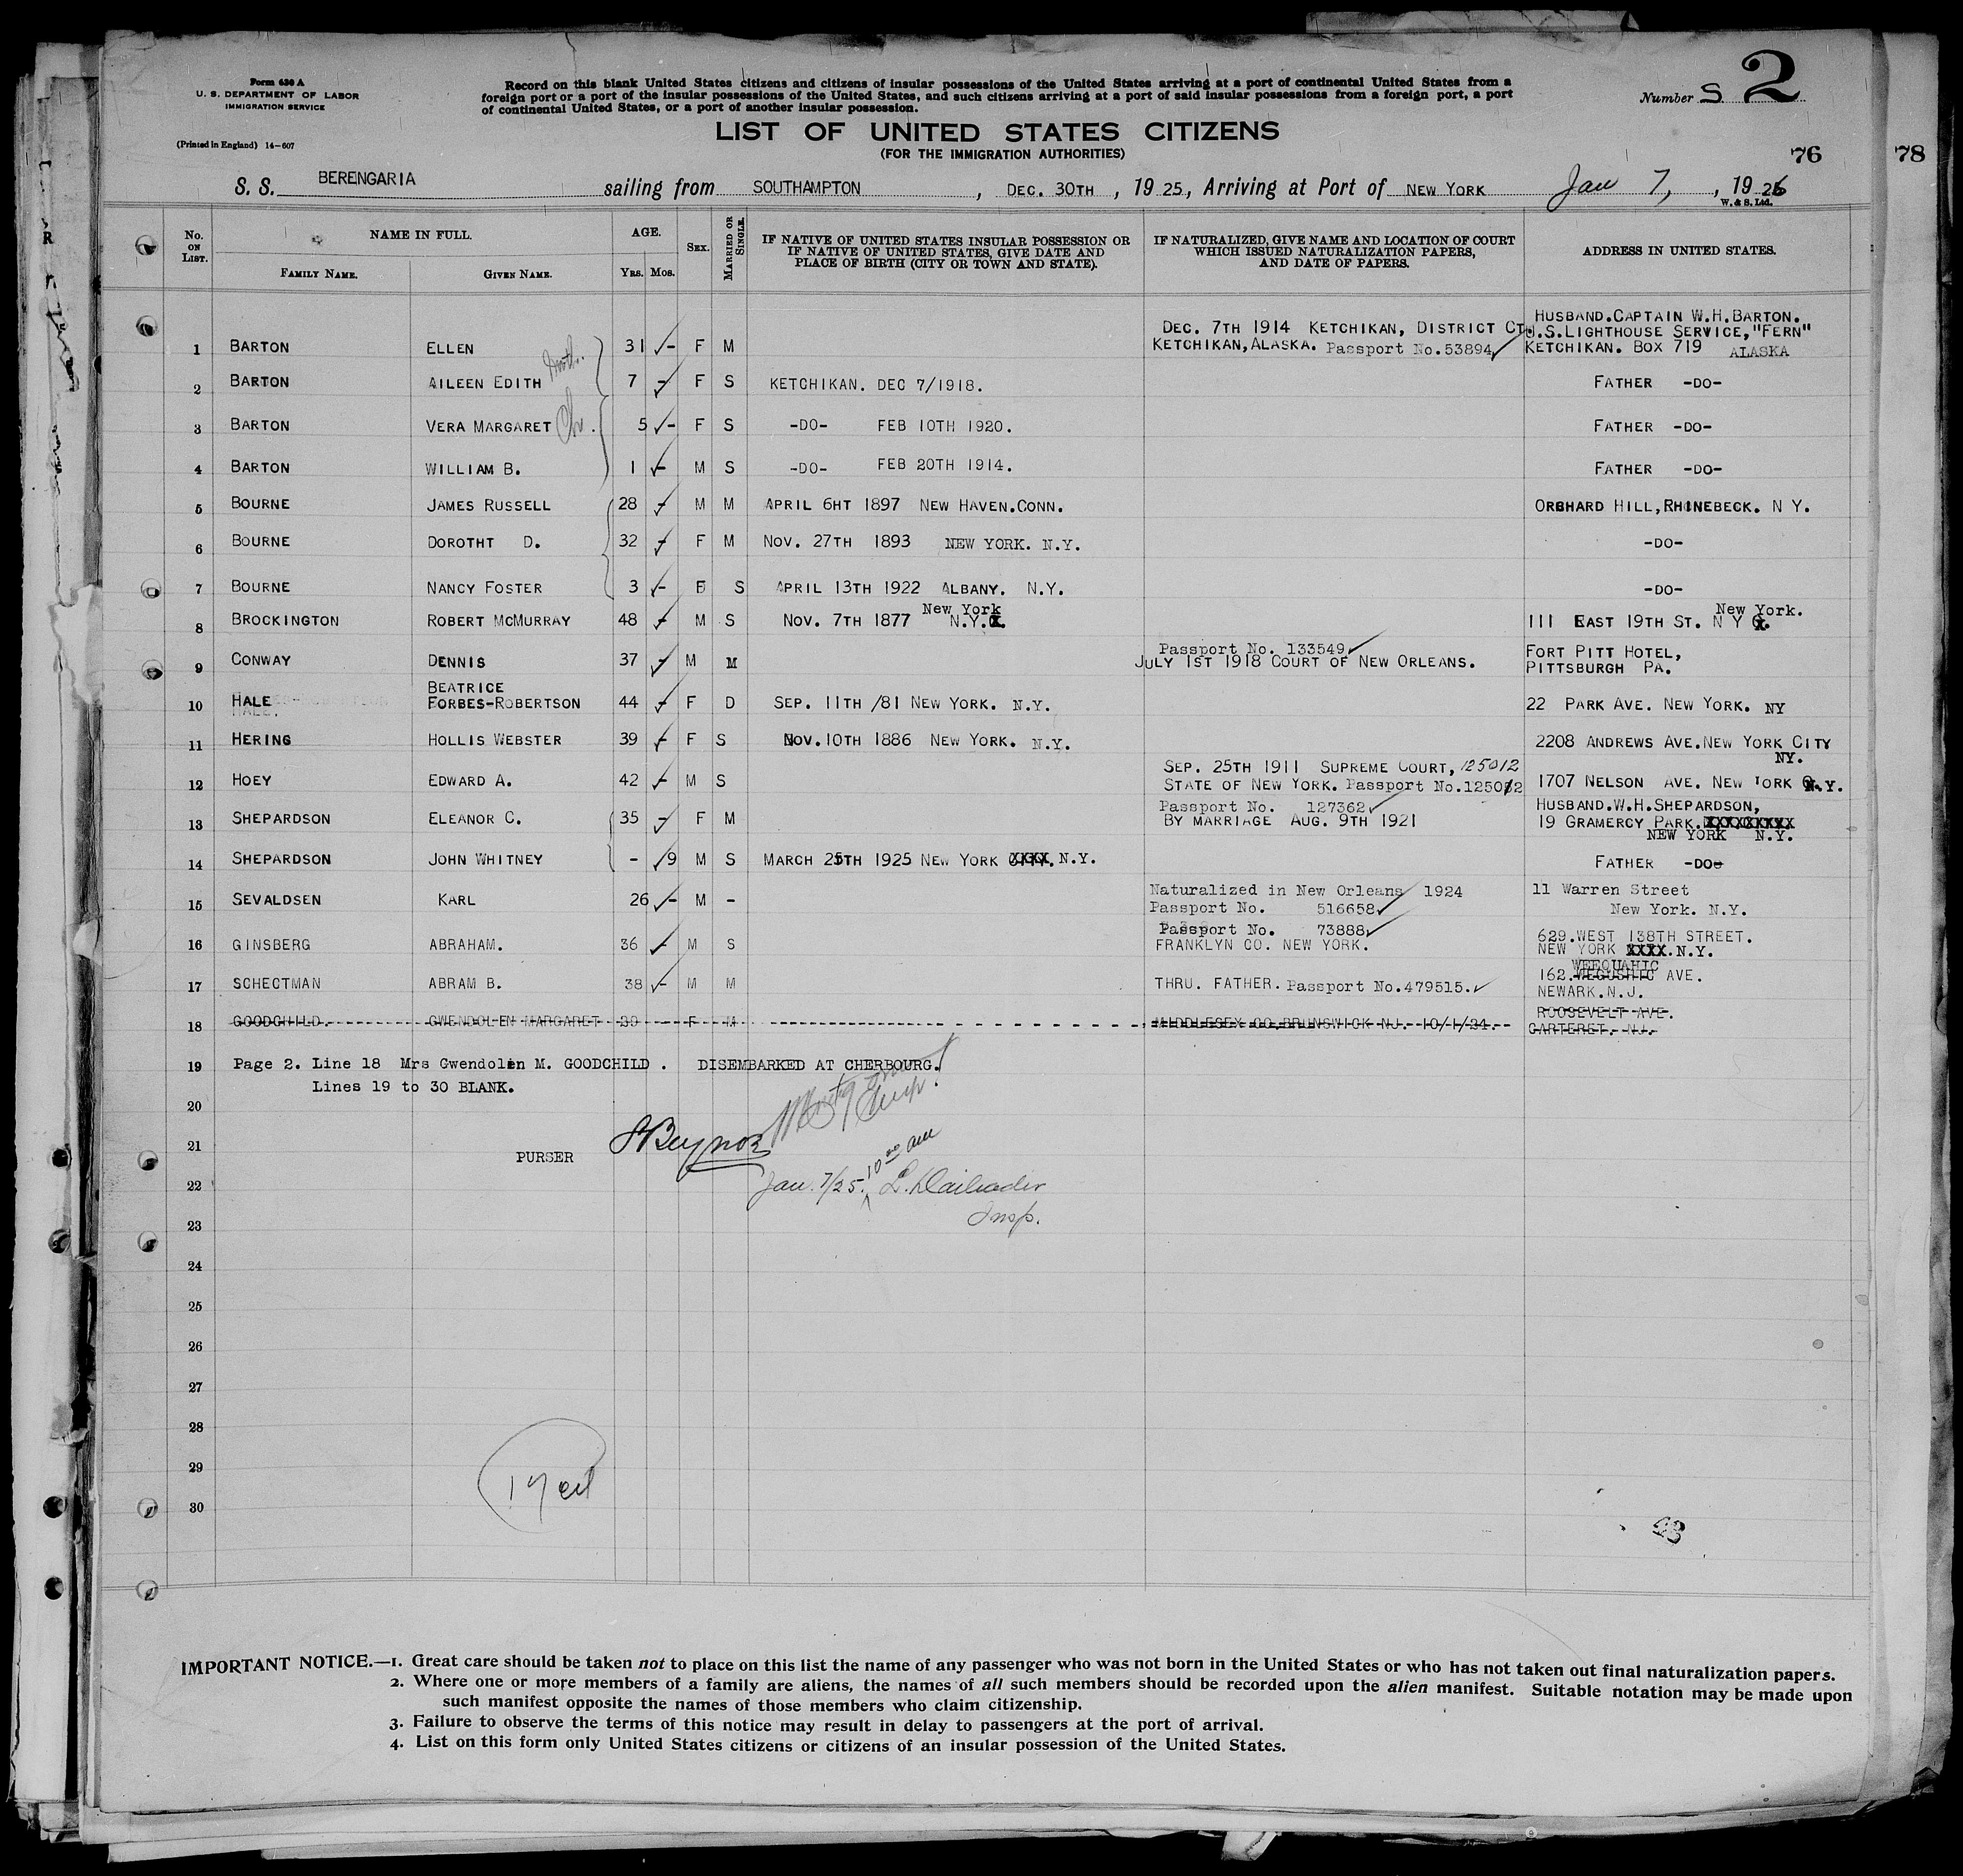 Form 630 A
U. S. DEPARTMENT OF LABOR
IMMIGRATION SERVICE
(Printed in England) 14—607
Record on this blank United States citizens and citizens of insular possessions of the United States arriving at a port of continental United States from a
foreign port or a port of the insular possessions of the United States, and such citizens arriving at a port of said insular possessions from a foreign port, a port
of continental United States, or a port of another insular possession.
Number S 2
LIST OF UNITED STATES CITIZENS
(FOR THE IMMIGRATION AUTHORITIES)
76 78
S. S. BERENGARIA sailing from SOUTHAMPTON, DEC. 30TH, 1925, Arriving at Port of NEW YORK Jan 7, , 1926
W. & S. Ltd.
No. ON LIST. NAME IN FULL. FAMILY NAME. GIVEN NAME. AGE. YRS. MOS. SEX. MARRIED OR SINGLE. IF NATIVE OF UNITED STATES INSULAR POSSESSION OR IF NATIVE OF UNITED STATES, GIVE DATE AND PLACE OF BIRTH (CITY OR TOWN AND STATE). IF NATURALIZED, GIVE NAME AND LOCATION OF COURT WHICH ISSUED NATURALIZATION PAPERS, AND DATE OF PAPERS. ADDRESS IN UNITED STATES.
HUSBAND.CAPTAIN W.H.BARTON.
DEC. 7TH 1914 KETCHIKAN, DISTRICT CT. U.S.LIGHTHOUSE SERVICE,"FERN"
1 BARTON ELLEN 31 - F M KETCHIKAN,ALASKA. Passport No.53894 KETCHIKAN. BOX 719 ALASKA
2 BARTON AILEEN EDITH 7 - F S KETCHIKAN. DEC 7/1918. FATHER -DO-
3 BARTON VERA MARGARET 5 - F S -DO- FEB 10TH 1920. FATHER -DO-
4 BARTON WILLIAM B. 1 - M S -DO- FEB 20TH 1914. FATHER -DO-
5 BOURNE JAMES RUSSELL 28 - M M APRIL 6HT 1897 NEW HAVEN.CONN. ORCHARD HILL,RHINEBECK. N Y.
6 BOURNE DOROTHT D. 32 - F M NOV. 27TH 1893 NEW YORK. N.Y. -DO-
7 BOURNE NANCY FOSTER 3 - F S APRIL 13TH 1922 ALBANY. N.Y. -DO-
New York New York.
8 BROCKINGTON ROBERT MCMURRAY 48 - M S NOV. 7TH 1877 N.Y. 111 EAST 19TH ST. N Y
Passport No. 133549 FORT PITT HOTEL,
9 CONWAY DENNIS 37 - M M JULY 1ST 1918 COURT OF NEW ORLEANS. PITTSBURGH PA.
BEATRICE
10 HALE FORBES-ROBERTSON 44 - F D SEP. 11TH /81 NEW YORK. N.Y. 22 PARK AVE. NEW YORK. NY
11 HERING HOLLIS WEBSTER 39 - F S NOV.10TH 1886 NEW YORK. N.Y. 2208 ANDREWS AVE.NEW YORK CITY
NY.
SEP. 25TH 1911 SUPREME COURT, 125012
12 HOEY EDWARD A. 42 - M S STATE OF NEW YORK. Passport No.125012 1707 NELSON AVE. NEW YORK N.Y.
Passport No. 127362 HUSBAND.W.H.SHEPARDSON,
13 SHEPARDSON ELEANOR C. 35 - F M BY MARRIAGE AUG. 9TH 1921 19 GRAMERCY PARK. XXXXXXXXX
NEW YORK N.Y.
14 SHEPARDSON JOHN WHITNEY - 9 M S MARCH 25TH 1925 NEW YORK XXXX. N.Y. FATHER -DO-
Naturalized in New Orleans 1924 11 Warren Street
15 SEVALDSEN KARL 26 - M - Passport No. 516658 New York. N.Y.
Passport No. 73888 629.WEST 138TH STREET.
16 GINSBERG ABRAHAM. 36 - M S FRANKLYN CO. NEW YORK. NEW YORK XXXX.N.Y.
WEEQUAHIC
17 SCHECTMAN ABRAM B. 38 - M M THRU. FATHER. Passport No.479515. 162. AVE.
NEWARK.N.J.
ROOSEVELT AVE.
18 GOODCHILD. GWENDOLEN MARGARET 30 - F M MIDDLESEX CO.BRUNSWICK NJ. 10/1/24. CARTERET. NJ.
19 Page 2. Line 18 Mrs Gwendolin M. GOODCHILD . DISEMBARKED AT CHERBOURG.
Lines 19 to 30 BLANK.
20
21
PURSER
22 Jan. 7/25. 10 00 am
Insp.
23
24
25
26
27
28
29
30
48
IMPORTANT NOTICE.—1. Great care should be taken not to place on this list the name of any passenger who was not born in the United States or who has not taken out final naturalization papers.
2. Where one or more members of a family are aliens, the names of all such members should be recorded upon the alien manifest. Suitable notation may be made upon
such manifest opposite the names of those members who claim citizenship.
3. Failure to observe the terms of this notice may result in delay to passengers at the port of arrival.
4. List on this form only United States citizens or citizens of an insular possession of the United States.